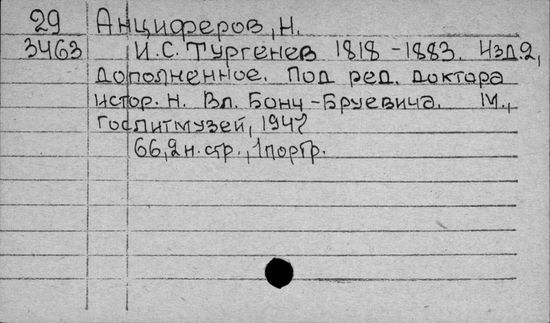 29 Анциферов, Н.
3463 И.С. Тургенев 1818-1883. Изд.2,
дополненное. Под ред. доктора
истор. н. Вл. Бонч-Бруевича. М.,
Гослитмузей, 1947
66,2н.стр., 1портр.